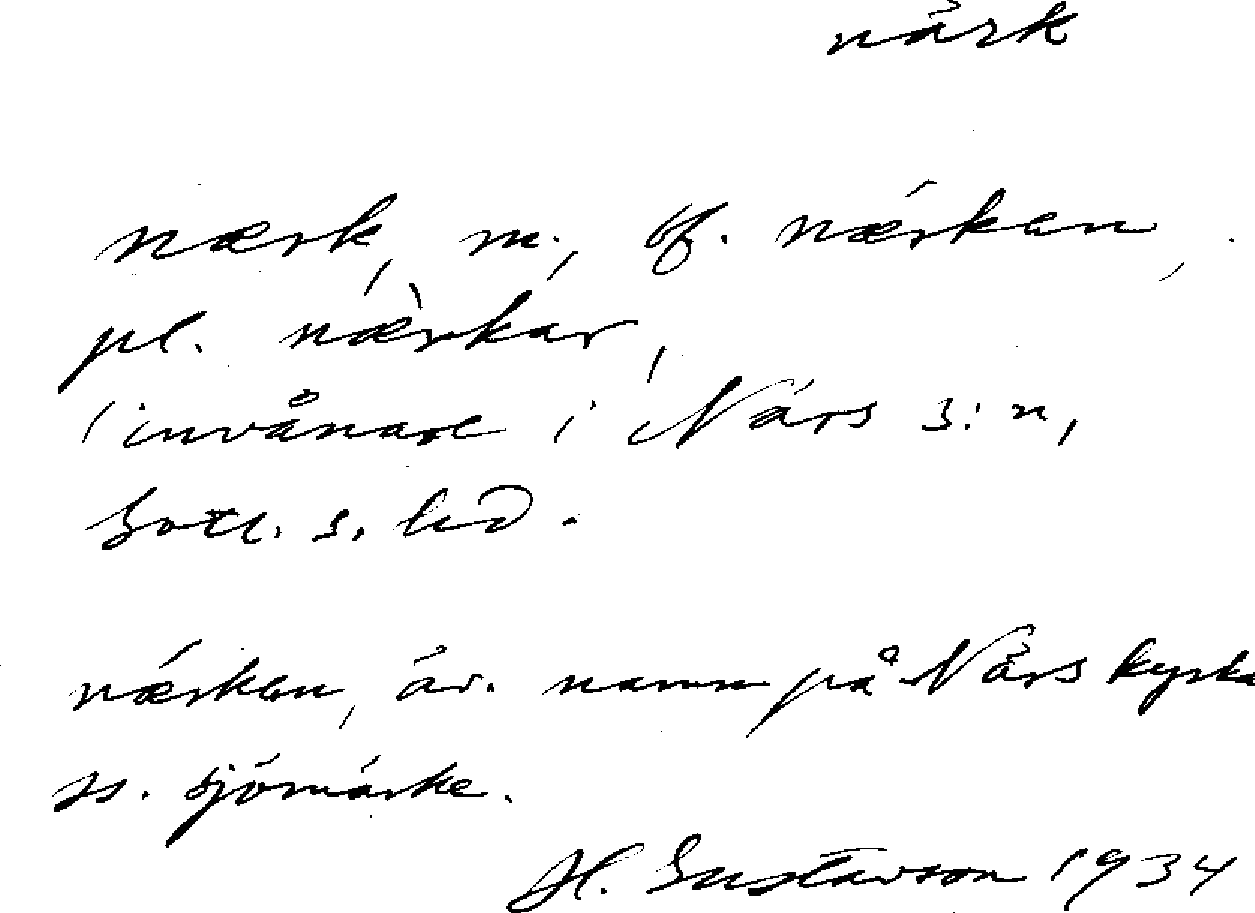 närk
nærk, m., bf. nǽrken,
pl. næ̀rkar,
'invånare i Närs s:n,
Gotl. s. hd.
nǽrken, äv. namn på Närs kyrka
ss. sjömärke.
H. Gustavson 1934